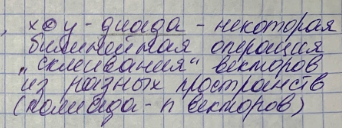 , x⊗y - диада - некоторая
билинейная операция
"склеивания" векторов
из разных пространств
(полиада - n векторов)